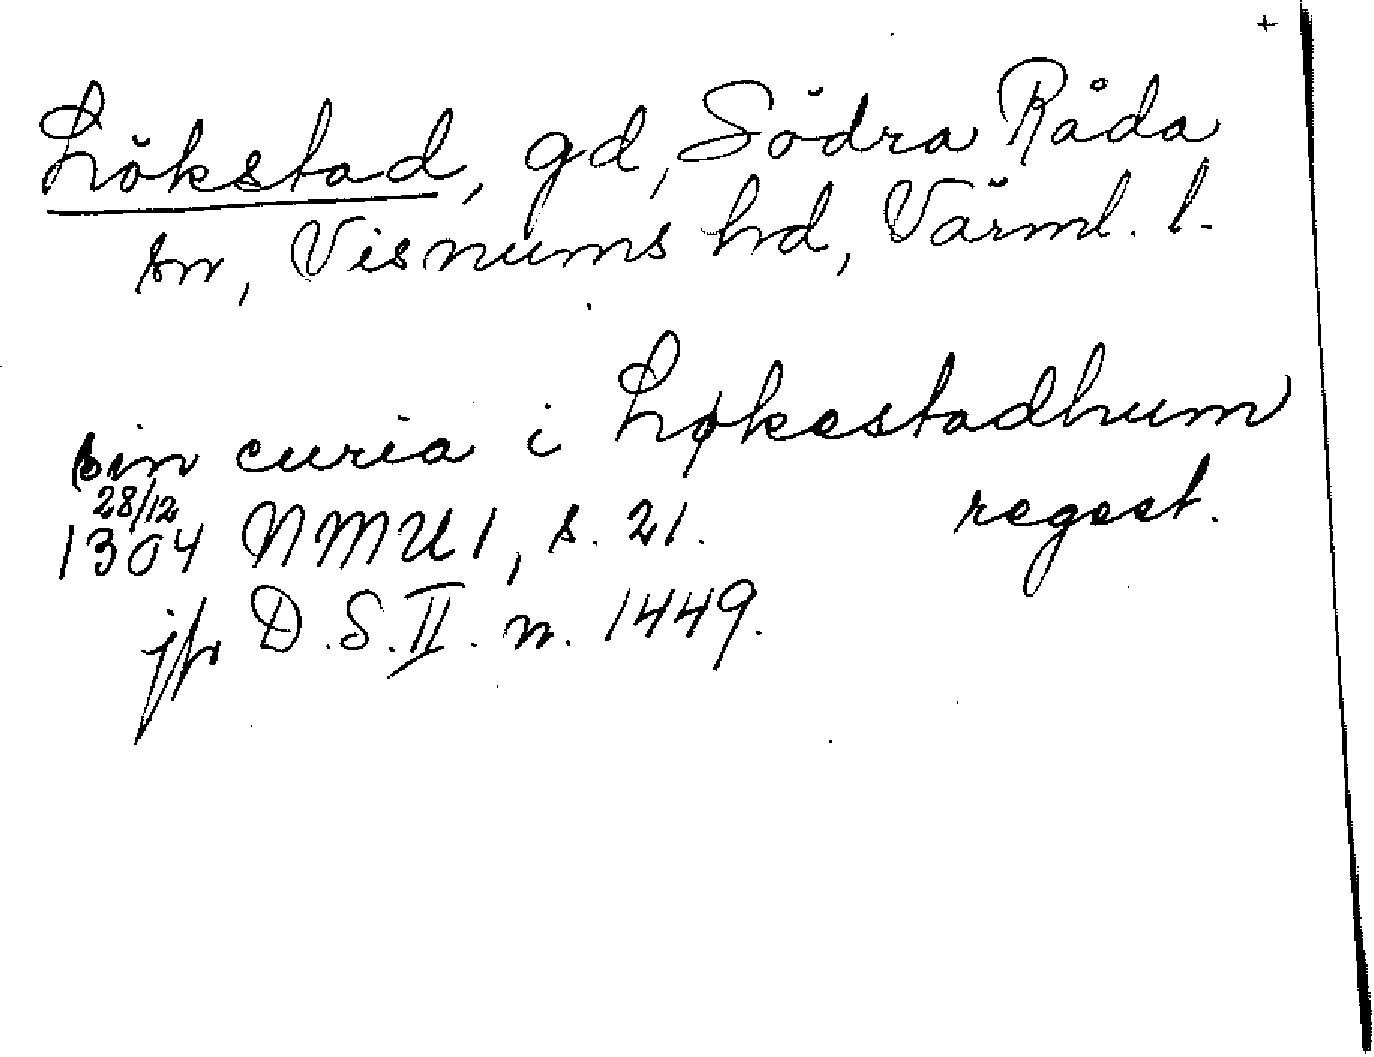 +
Lökstad, gd, Södra Råda
sn, Visnums hd, Värml. l.
sin curia i Løkestadhum
28/12
1304 NMU 1, s. 21. regest.
jfr D.S. II. n. 1449.